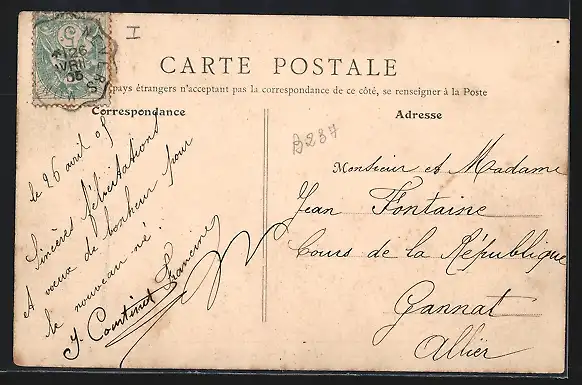 CARTE POSTALE
pays étrangers n'acceptant pas la correspondance de ce côté, se renseigner à la Poste
Correspondance
le 26 avril 05
Sincères félicitations
et vœux de bonheur pour
le nouveau né.
Francine
B237
Adresse
Monsieur et Madame
Jean Fontaine
Cours de la République
Gannat
Allier
26
AVRIL
05